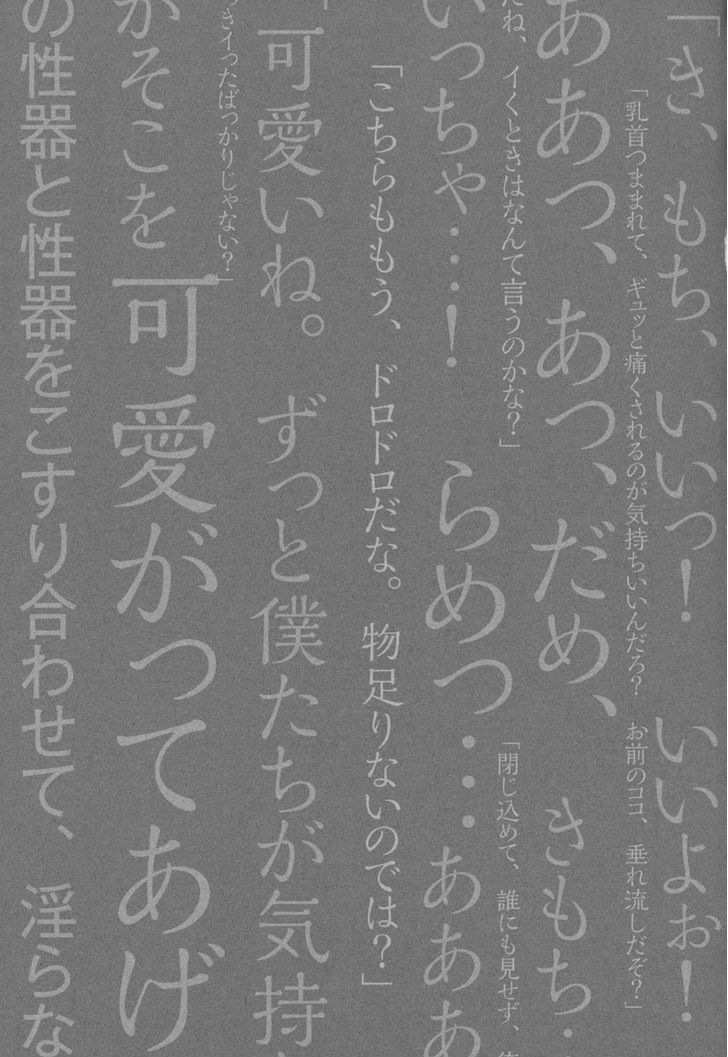 「き、もち、いいっ！　いいよぉ！
「乳首つままれて、ギュッと痛くされるのが気持ちいいんだろ？　お前のココ、垂れ流しだぞ？」
ああっ、あっ、だめ、きもち
だね、イくときはなんて言うのかな？」
「閉じ込めて、誰にも見せず、
いっちゃ…！　らめっ…あああ
「こちらももう、ドロドロだな。物足りないのでは？」
「可愛いね。ずっと僕たちが気持
っきイったばっかりじゃない？」
がそこを可愛がってあげ
の性器と性器をこすり合わせて、淫らな